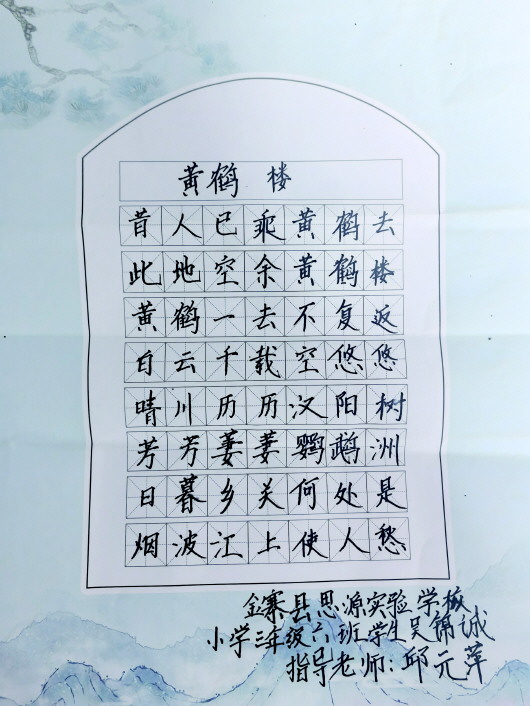 黄鹤 楼
昔人已乘黄鹤去
此地空余黄鹤楼
黄鹤一去不复返
白云千载空悠悠
晴川历历汉阳树
芳芳萋萋鹦鹉洲
日暮乡关何处是
烟波江上使人愁
金寨县思源实验学校
小学三年级六班学生吴锦诚
指导老师:邱元萍